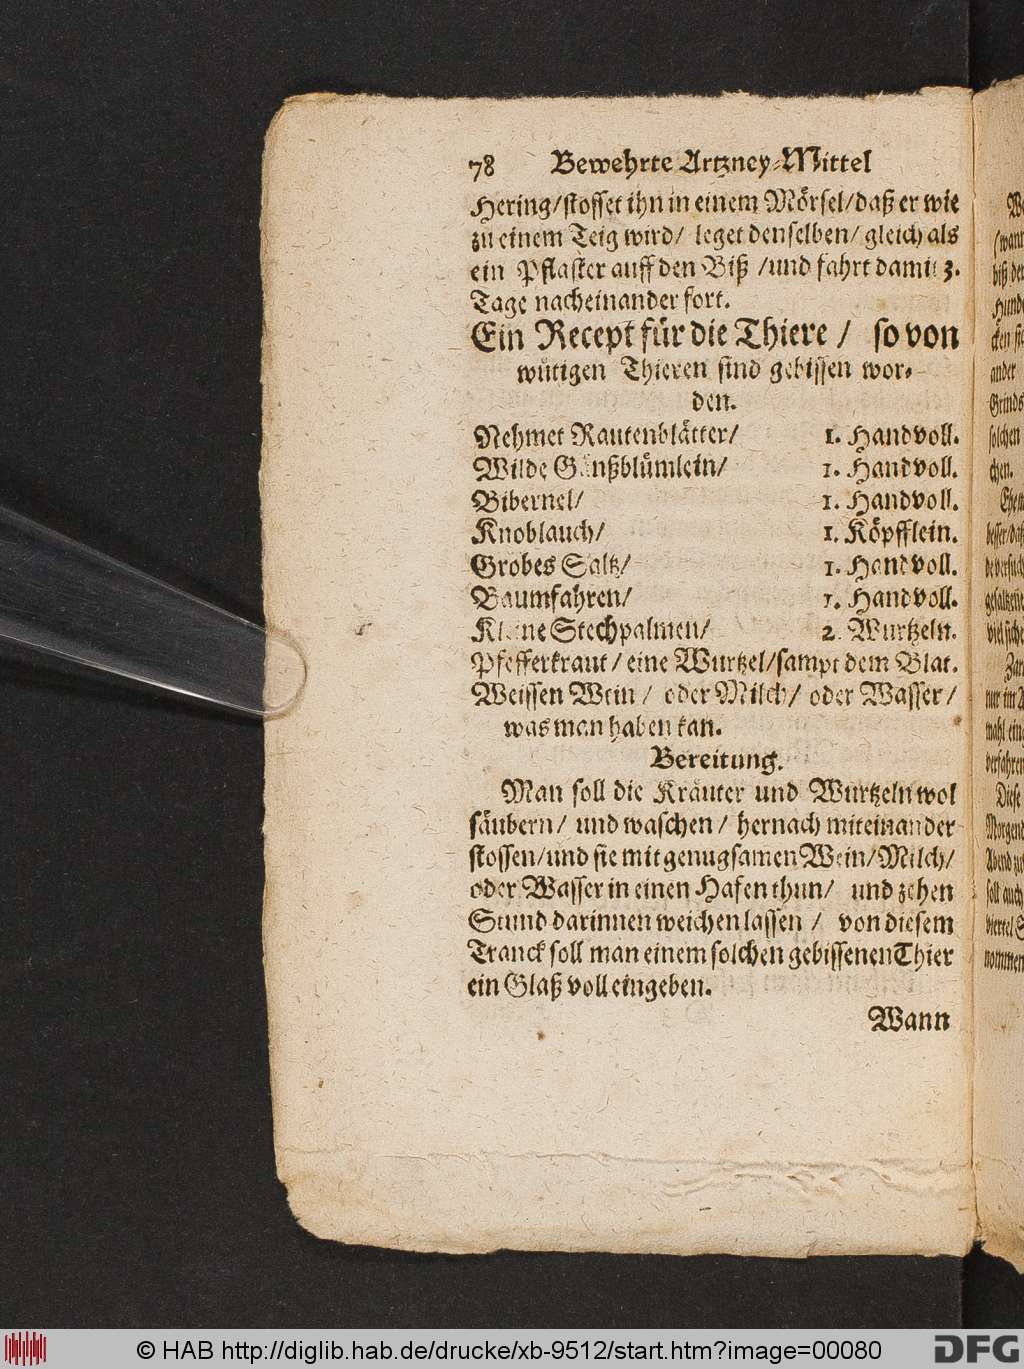 78 Bewehrte Artzney-Mittel
Hering/stosset ihn in einem Mörsel/daß er wie
zu einem Teig wird/ leget denselben/ gleich als
ein Pflaster auff den Biß /und fahrt damit 3.
Tage nacheinander fort.
Ein Recept für die Thiere / so von
wütigen Thieren sind gebissen wor-
den.
Nehmet Rautenblätter/ 1. Handvoll.
Wilde Gänßblümlein/ 1. Handvoll.
Bibernel/ 1. Handvoll.
Knoblauch/ 1. Köpfflein.
Grobes Saltz/ 1. Handvoll.
Baumfahren/ 1. Handvoll.
Kleine Stechpalmen/ 2. Wurtzeln.
Pfefferkraut / eine Wurtzel/sampt dem Blat.
Weissen Wein / oder Milch/ oder Wasser /
was man haben kan.
Bereitung.
Man soll die Kräuter und Wurtzeln wol
säubern/ und waschen / hernach miteinander
stossen/und sie mit genugsamen Wein/Milch/
oder Wasser in einen Hafen thun/ und zehen
Stund darinnen weichen lassen / von diesem
Tranck soll man einem solchen gebissenen Thier
ein Glaß voll eingeben.
Wann
© HAB http://diglib.hab.de/drucke/xb-9512/start.htm?image=00080
DFG